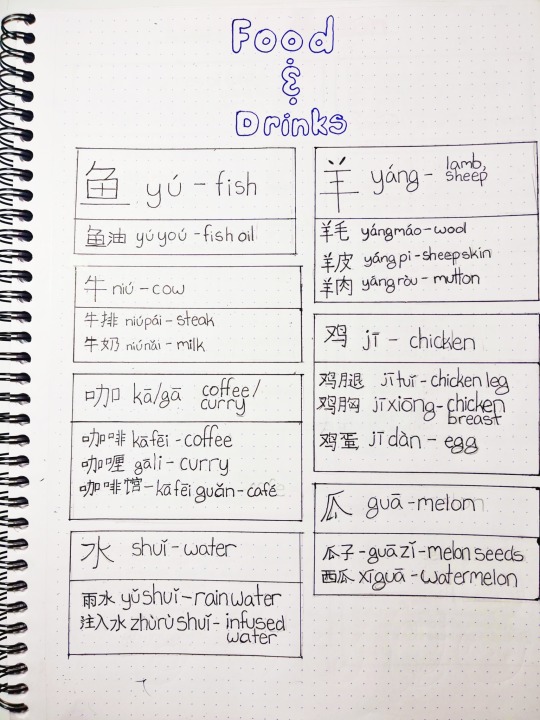 Food
&
Drinks
鱼 yú - fish
鱼油 yúyoú - fish oil
牛 niú - cow
牛排 niúpái - steak
牛奶 niúnǎi - milk
咖 kā/gā coffee/
curry
咖啡 kāfēi - coffee
咖喱 gāli - curry
咖啡馆 - kāfēi guǎn - café
水 shuǐ - water
雨水 yǔshuǐ - rain water
注入水 zhùrù shuǐ - infused
water
羊 yáng - lamb,
sheep
羊毛 yángmáo - wool
羊皮 yáng pi - sheepskin
羊肉 yáng ròu - mutton
鸡 jī - chicken
鸡腿 jī tuǐ - chicken leg
鸡胸 jī xiōng - chicken
breast
鸡蛋 jī dàn - egg
瓜 guā - melon
瓜子 - guā zǐ - melon seeds
西瓜 xīguā - watermelon